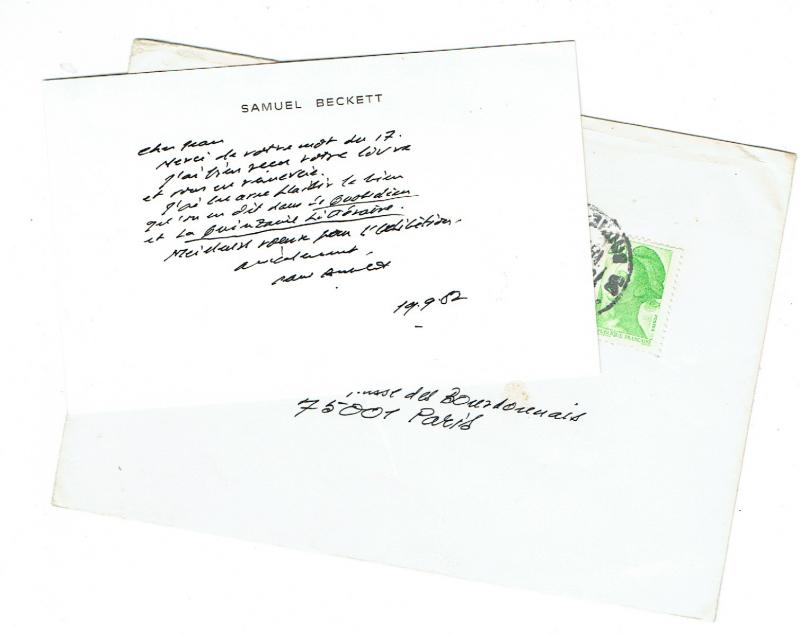 SAMUEL BECKETT
Cher Jean
Merci de votre mot du 17.
J'ai bien reçu votre livre
et vous en remercie.
J'ai lu avec plaisir le bien
qu'on en dit dans Le Quotidien
et La Quinzaine Littéraire.
Meilleurs voeux pour
amicalement
Sam Beckett
19.9.82
des Bourdonnais
75001 Paris
FRANÇAISE